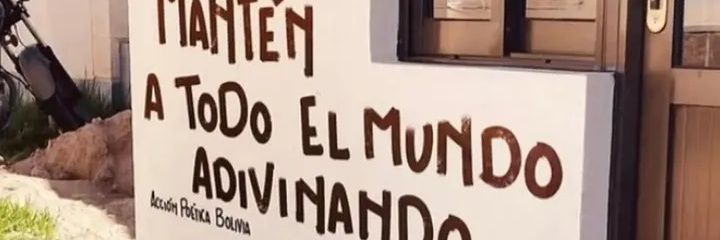 MANTÉN
A TODO EL MUNDO
ADIVINANDO
ACCIÓN POÉTICA BOLIVIA